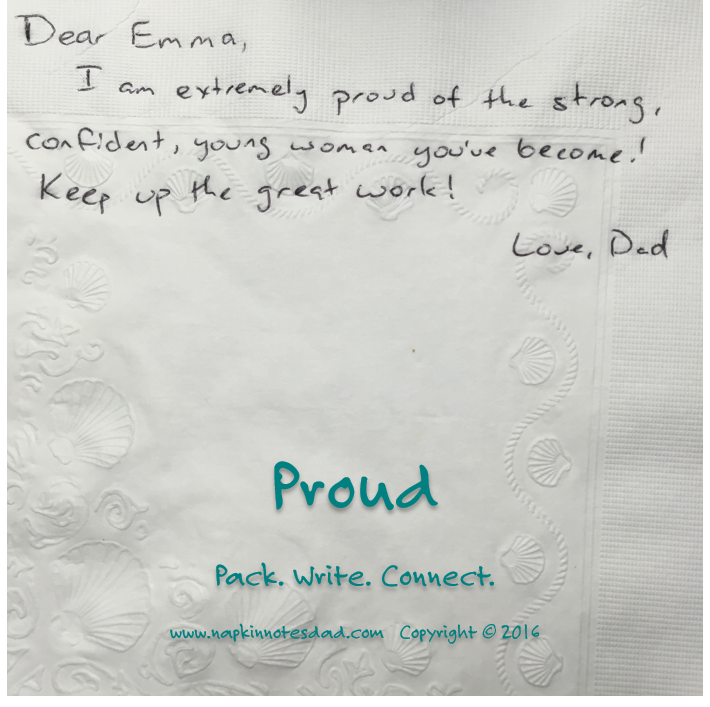 Dear Emma,
I am extremely proud of the strong,
confident, young woman you've become!
Keep up the great work!
Love, Dad
Proud
Pack. Write. Connect.
www.napkinnotesdad.com Copyright © 2016